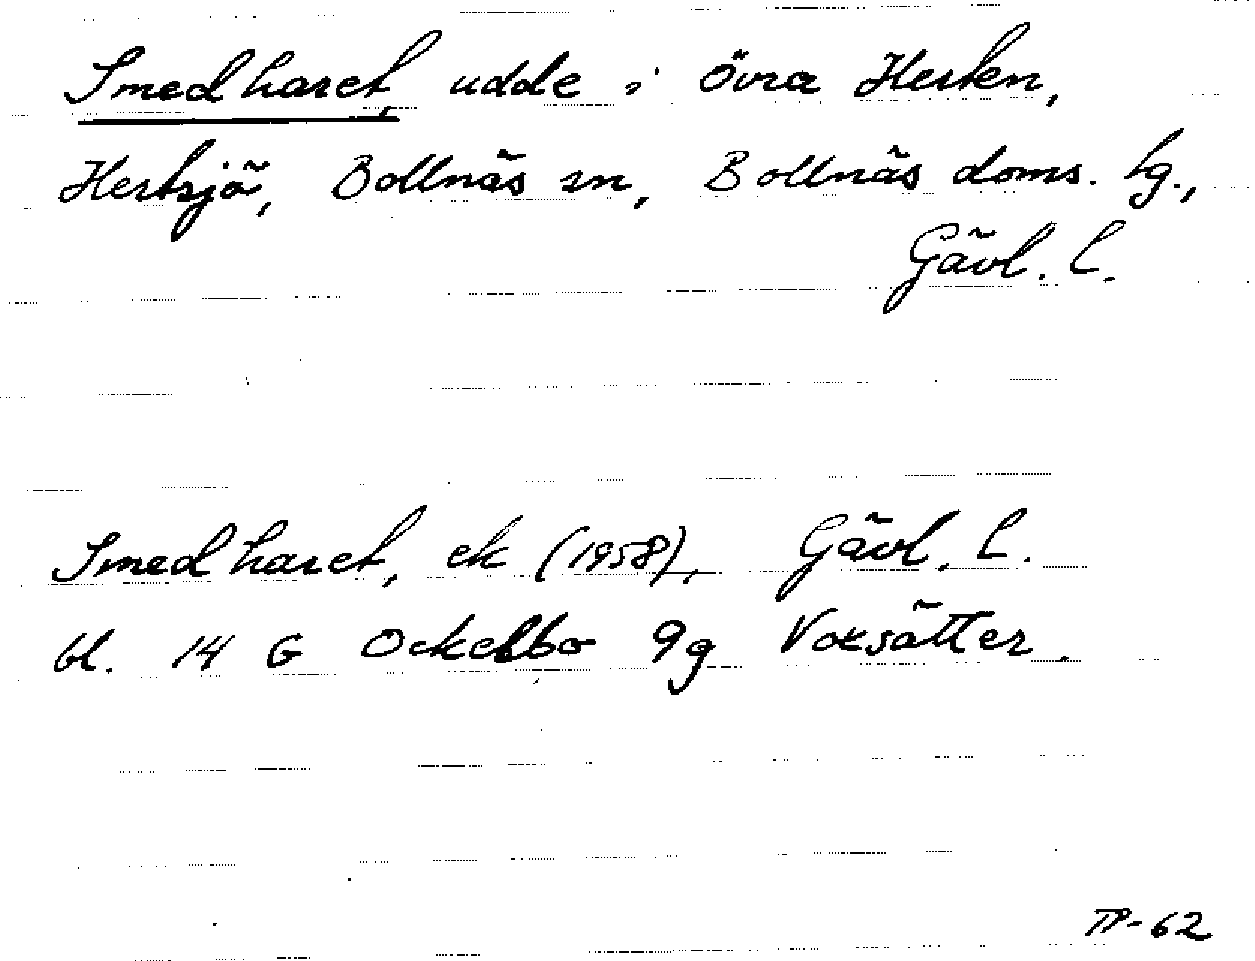 Smedharet, udde i Övra Herten,
Hertsjö, Bollnäs sn, Bollnäs doms. hg.,
Gävl. l.
Smedharet, ek (1958), Gävl. l.
bl. 14 G Ockelbo 9g Voxsätter.
TP-62